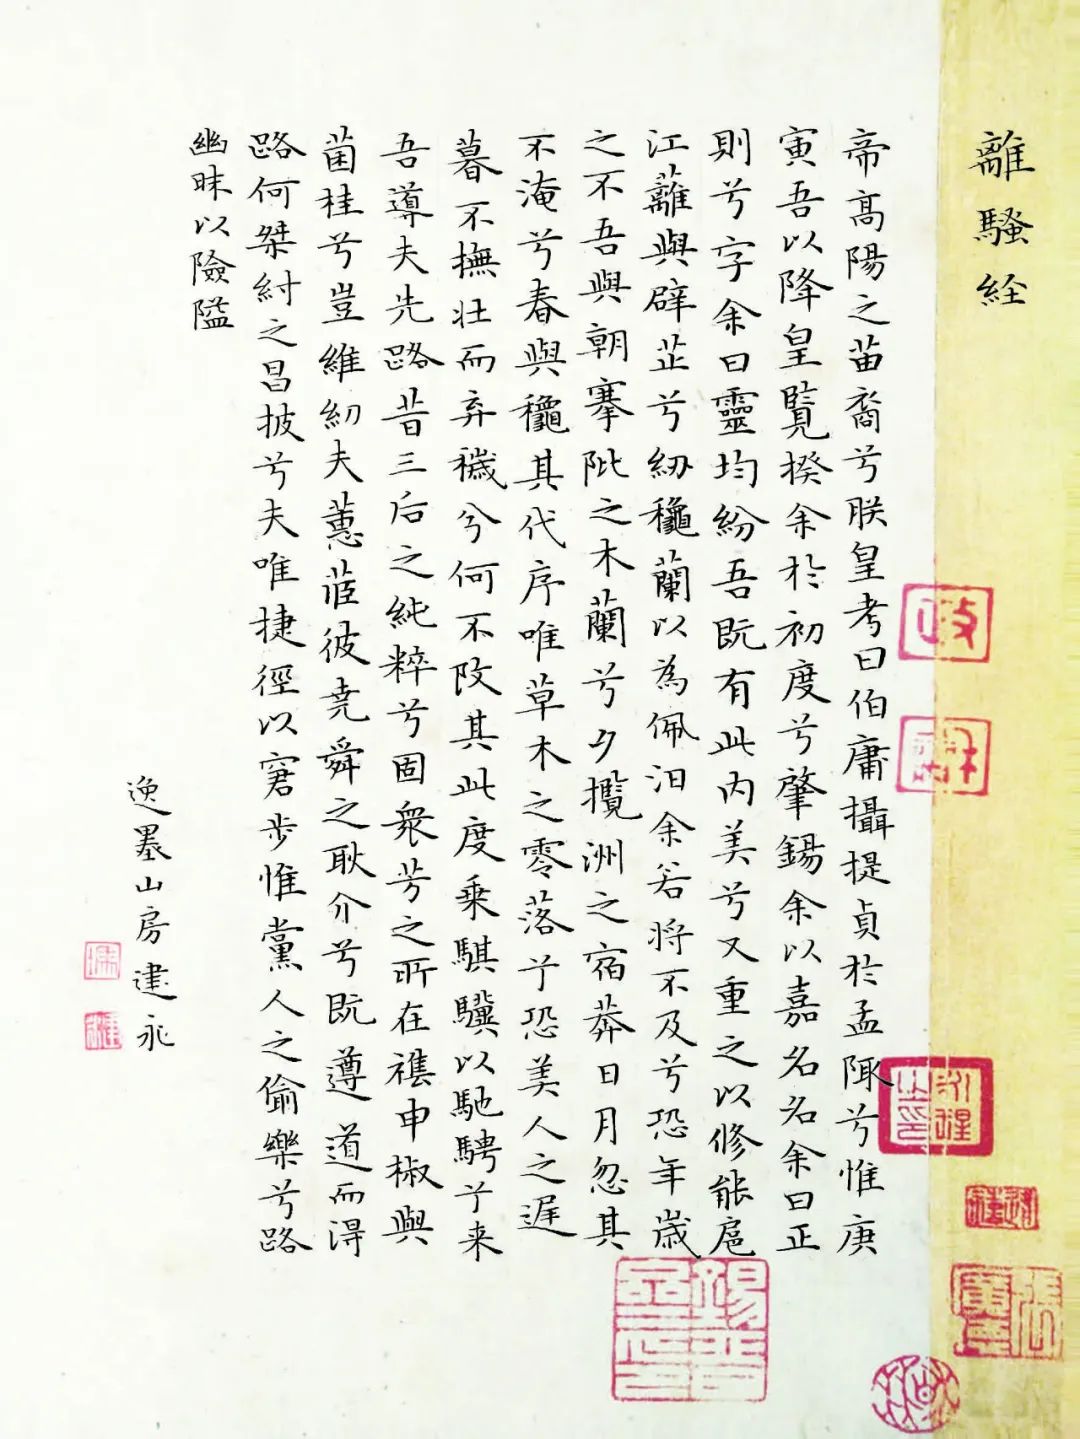 離騷経
帝高陽之苗裔兮朕皇考曰伯庸攝提貞於孟陬兮惟庚
寅吾以降皇覽揆余於初度兮肇錫余以嘉名名余曰正
則兮字余曰靈均紛吾既有此内美兮又重之以修能扈
江蘺與辟芷兮紉龝蘭以為佩汨余若将不及兮恐年歲
之不吾與朝搴阰之木蘭兮夕攬洲之宿莽日月忽其
不淹兮春與龝其代序唯草木之零落兮恐美人之遲
暮不撫壮而弃穢兮何不改其此度乗騏驥以馳騁兮来
吾導夫先路昔三后之純粹兮固衆芳之所在襍申椒與
菌桂兮豈維紉夫蕙茝彼堯舜之耿介兮既遵道而得
路何桀紂之昌披兮夫唯捷徑以窘步惟黨人之偷樂兮路
幽昧以險隘
逸墨山房建永